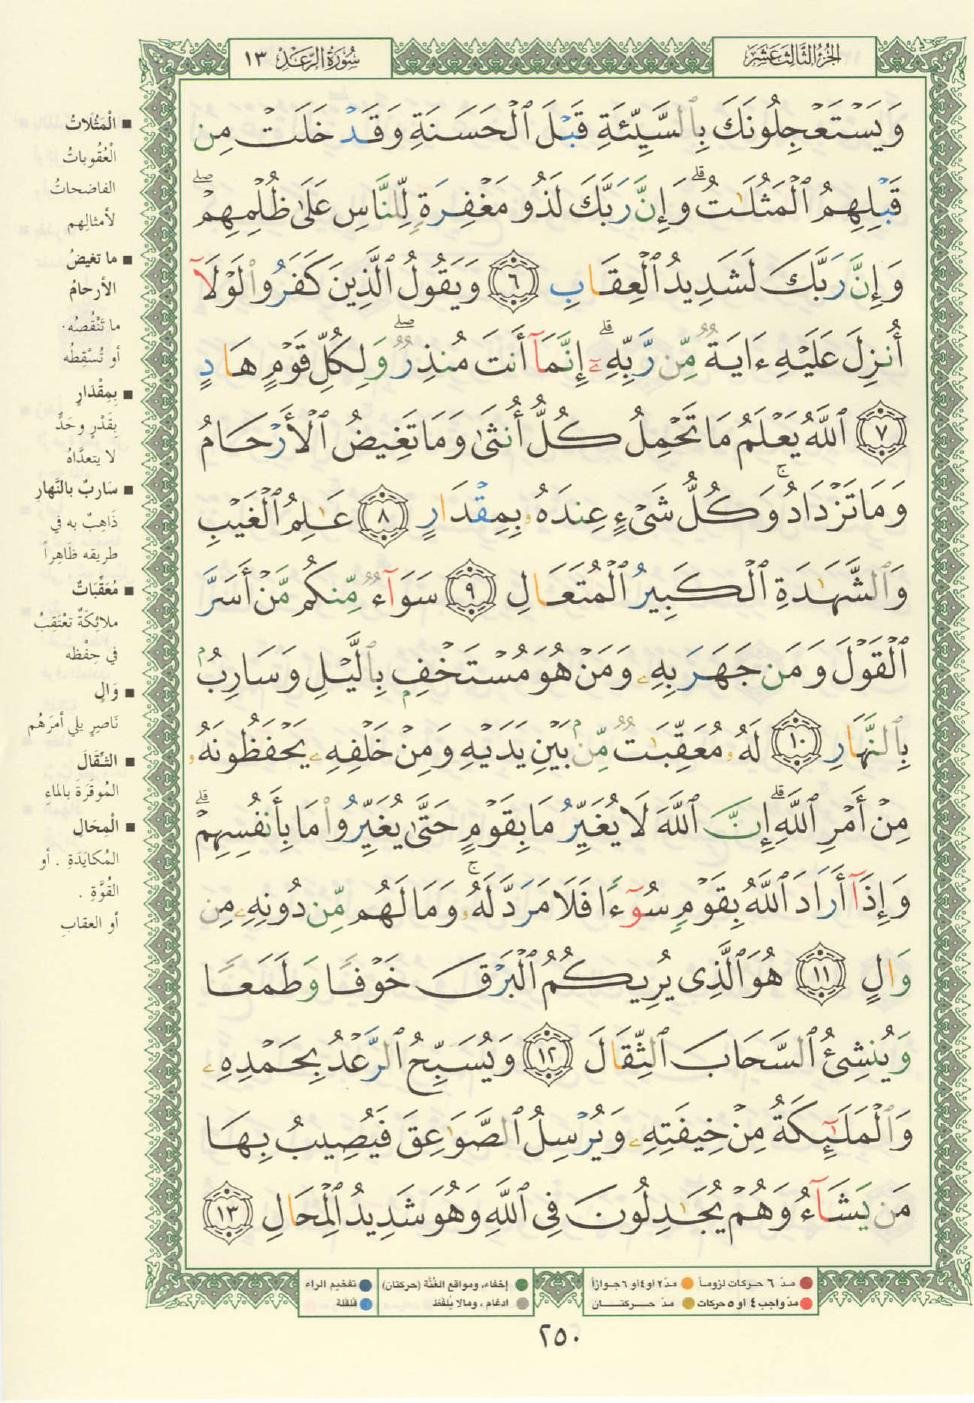 الجزء الثالث عشر
سورة الرعد ١٣
وَيَسْتَعْجِلُونَكَ بِٱلسَّيِّئَةِ قَبْلَ ٱلْحَسَنَةِ وَقَدْ خَلَتْ مِن
قَبْلِهِمُ ٱلْمَثُلَـٰتُ ۗ وَإِنَّ رَبَّكَ لَذُو مَغْفِرَةٍ لِّلنَّاسِ عَلَىٰ ظُلْمِهِمْ ۖ
وَإِنَّ رَبَّكَ لَشَدِيدُ ٱلْعِقَابِ ٦ وَيَقُولُ ٱلَّذِينَ كَفَرُوا۟ لَوْلَآ
أُنزِلَ عَلَيْهِ ءَايَةٌ مِّن رَّبِّهِۦٓ ۗ إِنَّمَآ أَنتَ مُنذِرٌ ۖ وَلِكُلِّ قَوْمٍ هَادٍ
٧ ٱللَّهُ يَعْلَمُ مَا تَحْمِلُ كُلُّ أُنثَىٰ وَمَا تَغِيضُ ٱلْأَرْحَامُ
وَمَا تَزْدَادُ ۖ وَكُلُّ شَىْءٍ عِندَهُۥ بِمِقْدَارٍ ٨ عَـٰلِمُ ٱلْغَيْبِ
وَٱلشَّهَـٰدَةِ ٱلْكَبِيرُ ٱلْمُتَعَالِ ٩ سَوَآءٌ مِّنكُم مَّنْ أَسَرَّ
ٱلْقَوْلَ وَمَن جَهَرَ بِهِۦ وَمَنْ هُوَ مُسْتَخْفٍۭ بِٱلَّيْلِ وَسَارِبٌۢ
بِٱلنَّهَارِ ١٠ لَهُۥ مُعَقِّبَـٰتٌ مِّنۢ بَيْنِ يَدَيْهِ وَمِنْ خَلْفِهِۦ يَحْفَظُونَهُۥ
مِنْ أَمْرِ ٱللَّهِ ۗ إِنَّ ٱللَّهَ لَا يُغَيِّرُ مَا بِقَوْمٍ حَتَّىٰ يُغَيِّرُوا۟ مَا بِأَنفُسِهِمْ ۗ
وَإِذَآ أَرَادَ ٱللَّهُ بِقَوْمٍ سُوٓءًا فَلَا مَرَدَّ لَهُۥ ۚ وَمَا لَهُم مِّن دُونِهِۦ مِن
وَالٍ ١١ هُوَ ٱلَّذِى يُرِيكُمُ ٱلْبَرْقَ خَوْفًا وَطَمَعًا
وَيُنشِئُ ٱلسَّحَابَ ٱلثِّقَالَ ١٢ وَيُسَبِّحُ ٱلرَّعْدُ بِحَمْدِهِۦ
وَٱلْمَلَـٰٓئِكَةُ مِنْ خِيفَتِهِۦ وَيُرْسِلُ ٱلصَّوَٰعِقَ فَيُصِيبُ بِهَا
مَن يَشَآءُ وَهُمْ يُجَـٰدِلُونَ فِى ٱللَّهِ وَهُوَ شَدِيدُ ٱلْمِحَالِ ١٣
■ الْمَثُلاتُ
الْعُقُوباتُ
الفاضحاتُ
لأمثالِهِم
■ ما تَغيضُ
الأرحامُ
ما تَنْقُصُه.
أو تُسْقِطُه
■ بِمِقْدَارٍ
بِقَدْرٍ وحَدٍّ
لا يتعدَّاهُ
■ سَارِبٌ بالنَّهارِ
ذَاهِبٌ به في
طريقه ظاهِراً
■ مُعَقِّبَاتٌ
ملائِكَةٌ تَعْتَقِبُ
في حِفْظه
■ وَالٍ
نَاصِرٍ يلي أمرَهُم
■ الثِّقَالَ
المُوقَرَةَ بالماءِ
■ الْمِحَالِ
المُكايَدَةِ . أو
القُوَّةِ .
أو العقابِ
مدّ ٦ حركات لزوماً مدّ ٢ أو ٤ أو ٦ جوازاً
مدّ واجب ٤ أو ٥ حركات مدّ حركتان
إخفاء، ومواقع الغُنَّة (حركتان) تفخيم الراء
ادغام ، ومالا يُلفَظ قلقلة
٢٥٠